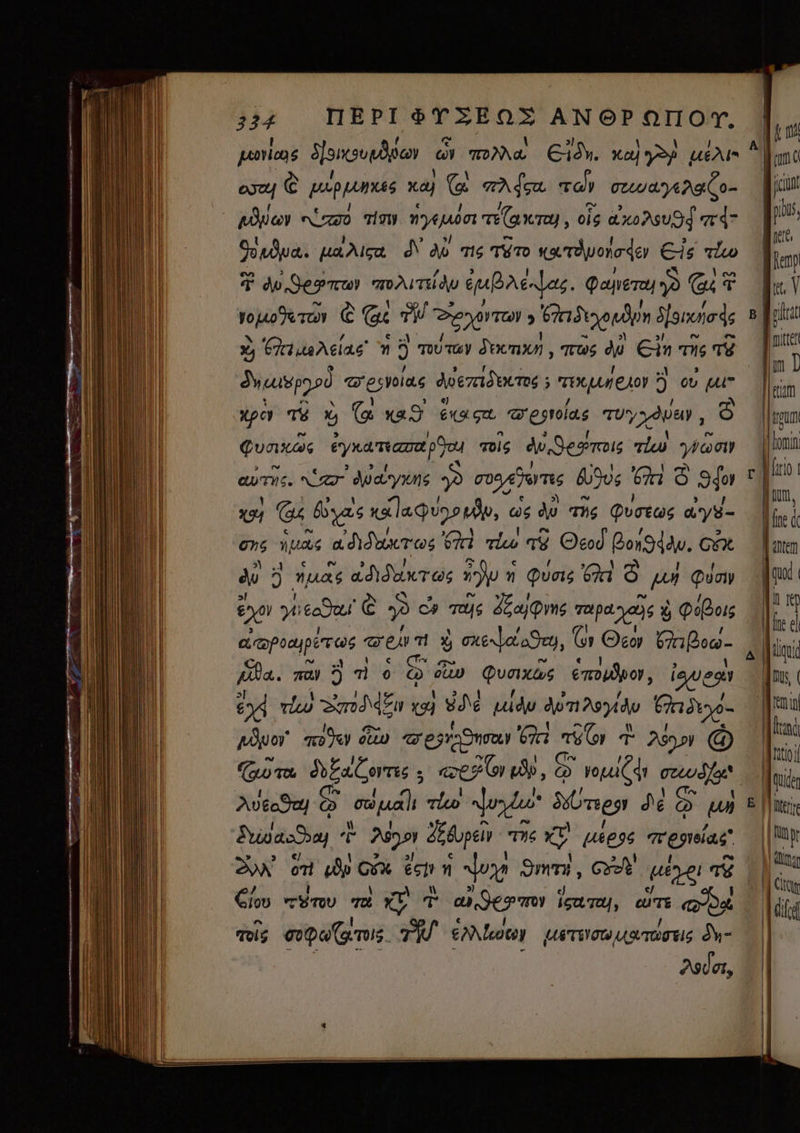 334 ΠΕΡΙ ΦΥΣΕΩΣ ΑΝΘΡΩΠΟΥ.
μονίας διοικουμένων ὧν πολλὰ εἴδη. καὶ γὰρ μέλισ-
σαι καὶ μύρμηκες καὶ τὰ πλεῖστα τῶν συναγελαζο-
μένων ὑπό τισιν ἡγεμόσι τέτακται, οἷς ἀκολουθεῖ πει-
θόμενα. μάλιστα δ' ἄν τις τοῦτο κατανοήσειεν εἰς τὴν
τῶν ἀνθρώπων πολιτείαν ἐμβλέψας. φαίνεται γὰρ τὰς τῶν
νομοθετῶν καὶ τὰς τῶν ἀρχόντων ἐπιδεχομένη διοικήσεις
καὶ ἐπιμελείας· ἡ δὲ τούτων δεκτικὴ, πῶς ἂν εἴη τῆς τοῦ
δημιουργοῦ προνοίας ἀνεπίδεκτος; τεκμήριον δὲ οὐ μι-
κρὸν τοῦ καὶ τὰ καθ' ἕκαστα προνοίας τυγχάνειν, τὸ
φυσικῶς ἐγκατεσπάρθαι τοῖς ἀνθρώποις τὴν γνῶσιν
αὐτῆς. ὑπ' ἀνάγκης γὰρ συσχεθέντες εὐθὺς ἐπὶ τὸ θεῖον
καὶ τὰς εὐχὰς καταφεύγομεν, ὡς ἂν τῆς φύσεως ἀγού-
σης ἡμᾶς ἀδιδάκτως ἐπὶ τὴν τοῦ Θεοῦ βοήθειαν. οὐκ
ἂν δὲ ἡμᾶς ἀδιδάκτως ἦγεν ἡ φύσις ἐπὶ τὸ μὴ φύσιν
ἔχον γίνεσθαι· καὶ γὰρ ἐν ταῖς ἐξαίφνης ταραχαῖς καὶ φόβοις
ἀπροαιρέτως πρίν τι καὶ σκέψασθαι, τὸν Θεὸν ἐπιβοώ-
μεθα. πᾶν δὲ τὸ τῳ οὖν φυσικῶς ἑπόμενον, ἰσχυρὰν
ἔχει τὴν ἀπόδειξιν καὶ οὐδὲ μίαν ἀντιλογίαν ἐπιδεχό-
μενον· πόθεν οὖν προήχθησαν ἐπὶ τοῦτον τὸν λόγον οἱ
ταῦτα δοξάζοντες; πρῶτον μὲν, τῷ νομίζειν συνδια-
λύεσθαι τῷ σώματι τὴν ψυχήν· δεύτερον δὲ τῷ μὴ
δύνασθαι τὸν λόγον ἐξευρεῖν τῆς κατὰ μέρος προνοίας.
ἀλλ' ὅτι μὲν οὐκ ἔστιν ἡ ψυχὴ θνητὴ, οὐδὲ μέχρι τοῦ
βίου τούτου τὰ κατὰ τὸν ἄνθρωπον ἵσταται, αἵ τε παρὰ
τοῖς σοφωτάτοις τῶν ἑλλήνων μετενσωματώσεις δη-
λοῦσι,